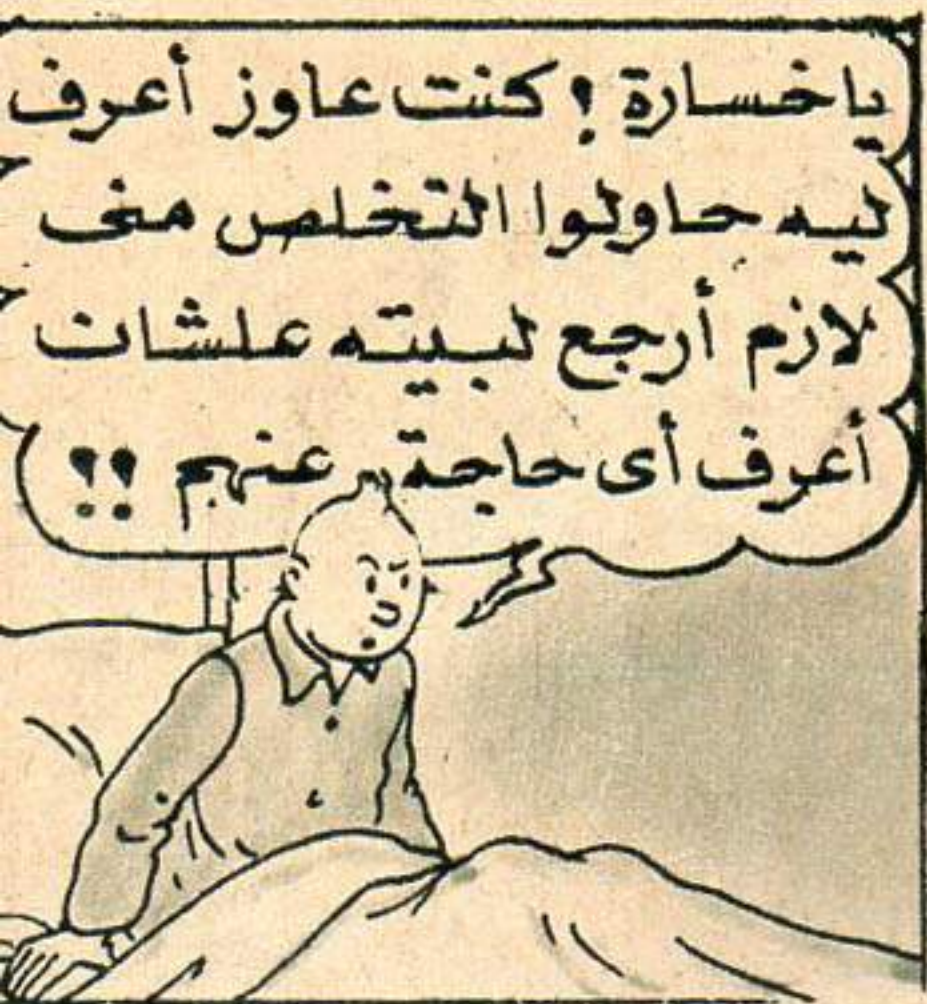 ياخسارة ! كنت عاوز أعرف
ليه حاولوا التخلص منى
لازم أرجع لبيته علشان
أعرف أى حاجة عنهم ؟؟